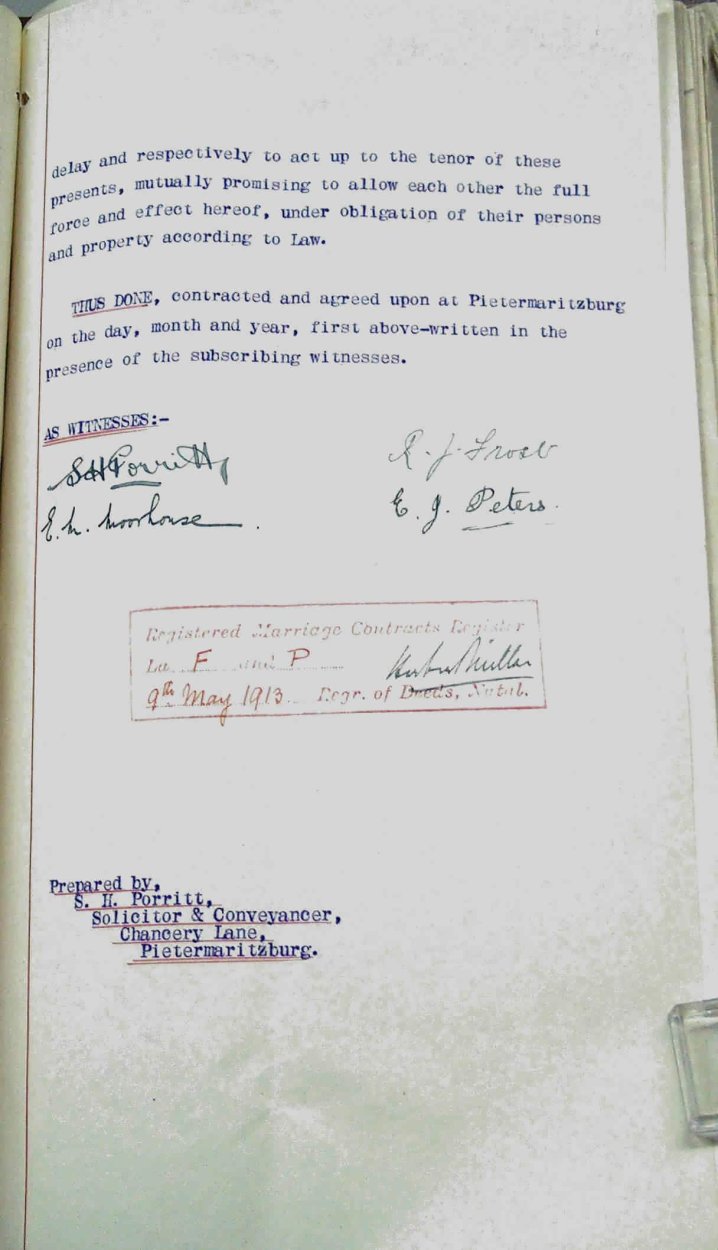 delay and respectively to act up to the tenor of these
presents, mutually promising to allow each other the full
force and effect hereof, under obligation of their persons
and property according to Law.
THUS DONE, contracted and agreed upon at Pietermaritzburg
on the day, month and year, first above-written in the
presence of the subscribing witnesses.
AS WITNESSES:-
S H Porritt
R. J. Frost
E. M. Moorhouse.
E. J. Peters.
Registered Marriage Contracts Register
F and P
9th May 1913 Regr. of Deeds, Natal.
Prepared by,
S. H. Porritt,
Solicitor & Conveyancer,
Chancery Lane,
Pietermaritzburg.